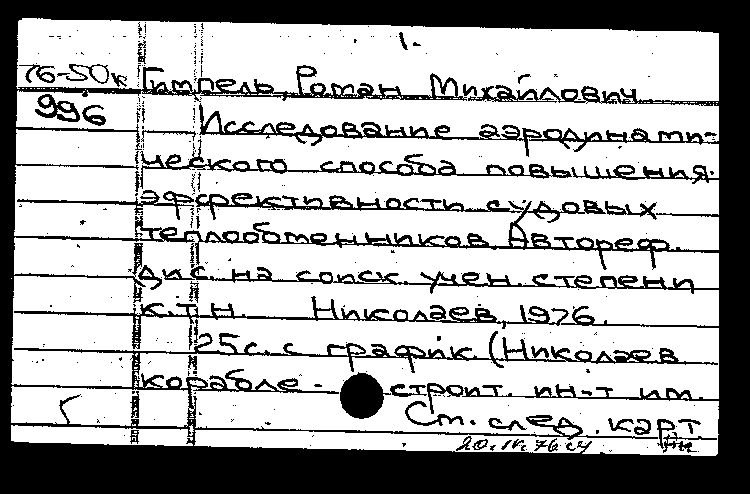 1.
76-50к Гимпель, Роман Михайлович
996 Исследование аэродинами-
ческого способа повышения
эффективности судовых
теплообменников. Автореф.
дис. на соиск. учен. степени
к.т.н. Николаев, 1976.
25 с. с график. (Николаев
корабле- строит. ин-т им.
Г См. след. карт